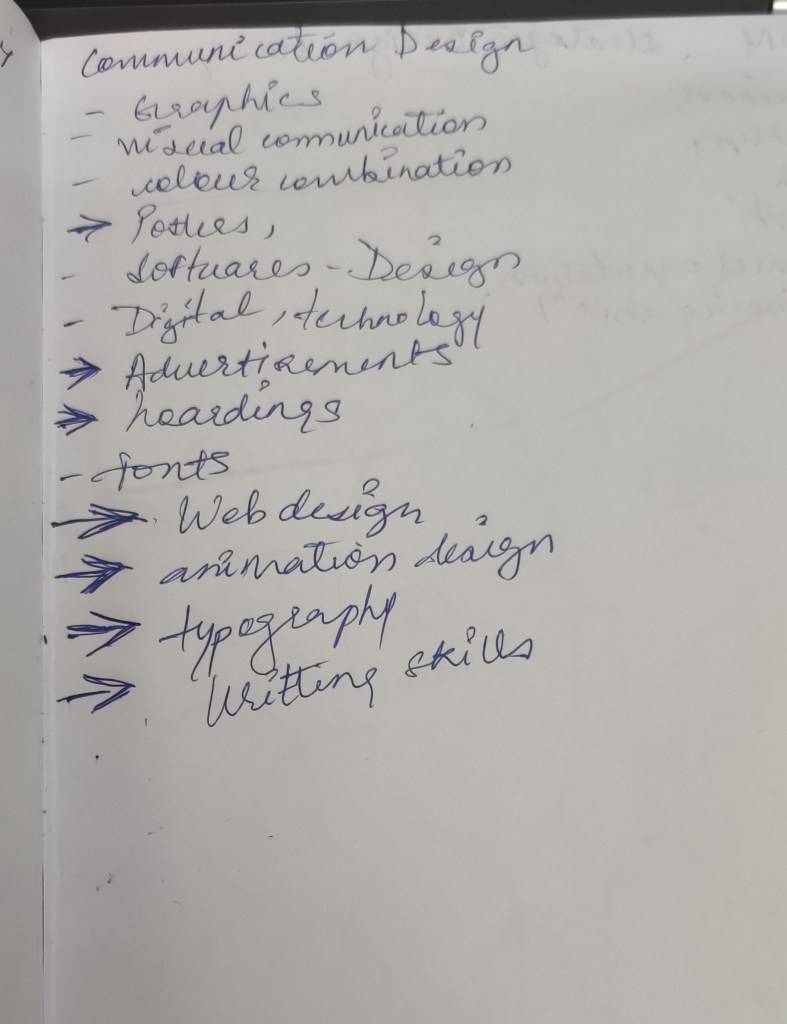 Communication Design
- Graphics
- visual communication
- colour combination
→ Posters,
- Softwares - Design
- Digital, technology
→ Advertisements
→ hoardings
- fonts
→ Web design
→ animation design
→ typography
→ Writting skills